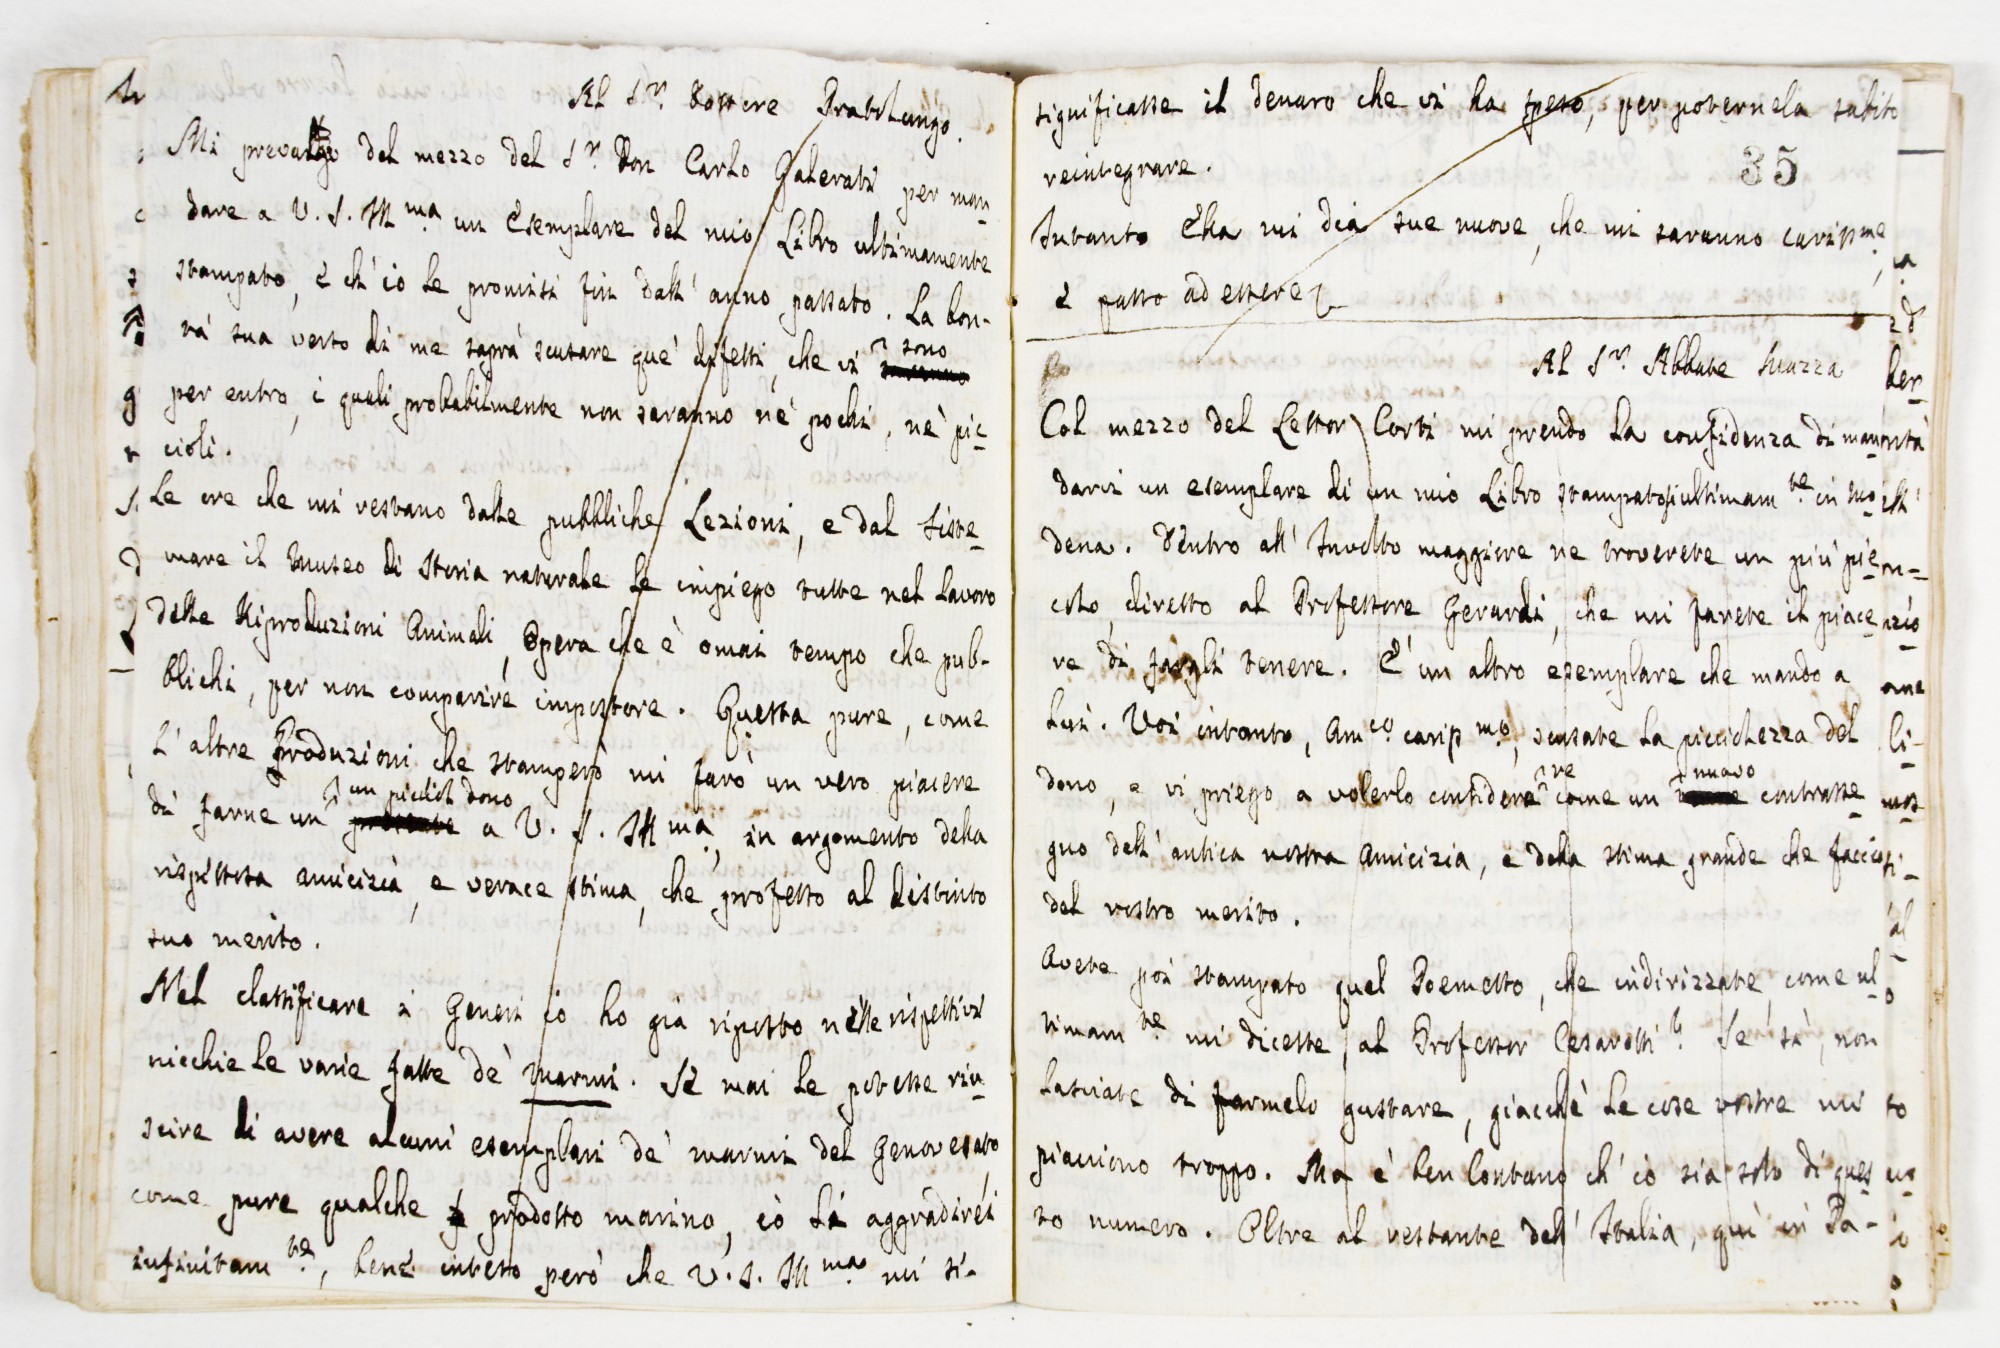 Al Sr. Dottore Pratolungo.
Mi prevalgo del mezzo del Sr. Don Carlo Galerati per man-
dare a V. S. Ill ma. un Esemplare del mio Libro ultimamente
stampato, e ch' io le promisi fin dall' anno passato. La bon-
tà sua verso di me saprà scusare que' difetti, che vi sono
per entro, i quali probabilmente non saranno nè pochi, nè pic-
cioli.
Le ore che mi restano dalle pubbliche Lezioni, e dal siste-
mare il Museo di Storia naturale le impiego tutte nel lavoro
delle Riproduzioni Animali, Opera che è omai tempo che pub-
blichi, per non comparire impostore. Questa pure, come
l' altre Produzioni che stamperò mi farò un vero piacere
di farne un piccich dono a V. S. Ill ma., in argomento della
rispettosa amicizia, e verace stima, che professo al distinto
suo merito.
Nel classificare i Generi io ho già riposto nelle rispettivi
nicchie le varie fatte de' marmi. Se mai le potesse riu-
scire di avere alcuni esemplari de' marmi del Genovesato
come pure qualche prodotto marino, io li aggradirei
infinitam te., bene inteso però che V. S. Ill ma. mi si-
significasse il denaro che vi ha speso, per poternela subito
reintegrare.
35
Intanto Ella mi dia sue nuove, che mi saranno cariss me.,
e passo ad essere
Al Sr. Abbate Suazza
Col mezzo del Lettor Corti mi prendo la confidenza di man-
darvi un esemplare di un mio Libro stampatosi ultimam te. in Mo-
dena. Dentro all' Involto maggiore ne troverete un più pic-
colo, diretto al Professore Gerardi, che mi farete il piace-
re di fargli tenere. È un altro esemplare che mando a
lui. Voi intanto, Am co. cariss mo., scusate la piccichezza del
dono, e vi priego a volerlo considerare come un nuovo contrasse-
gno dell' antica nostra amicizia, e della stima grande che faccio
del vostro merito.
Avete poi stampato quel Poemetto, che indirizzate, come ul-
timam te. mi diceste, al Professor Cesarotti? Se sì, non
lasciate di farmelo gustare, giacchè le cose vostre mi
piacciono troppo. Ma è ben lontano ch' io sia solo di ques-
to numero. Oltre al restante dell' Italia, quì in Pa-